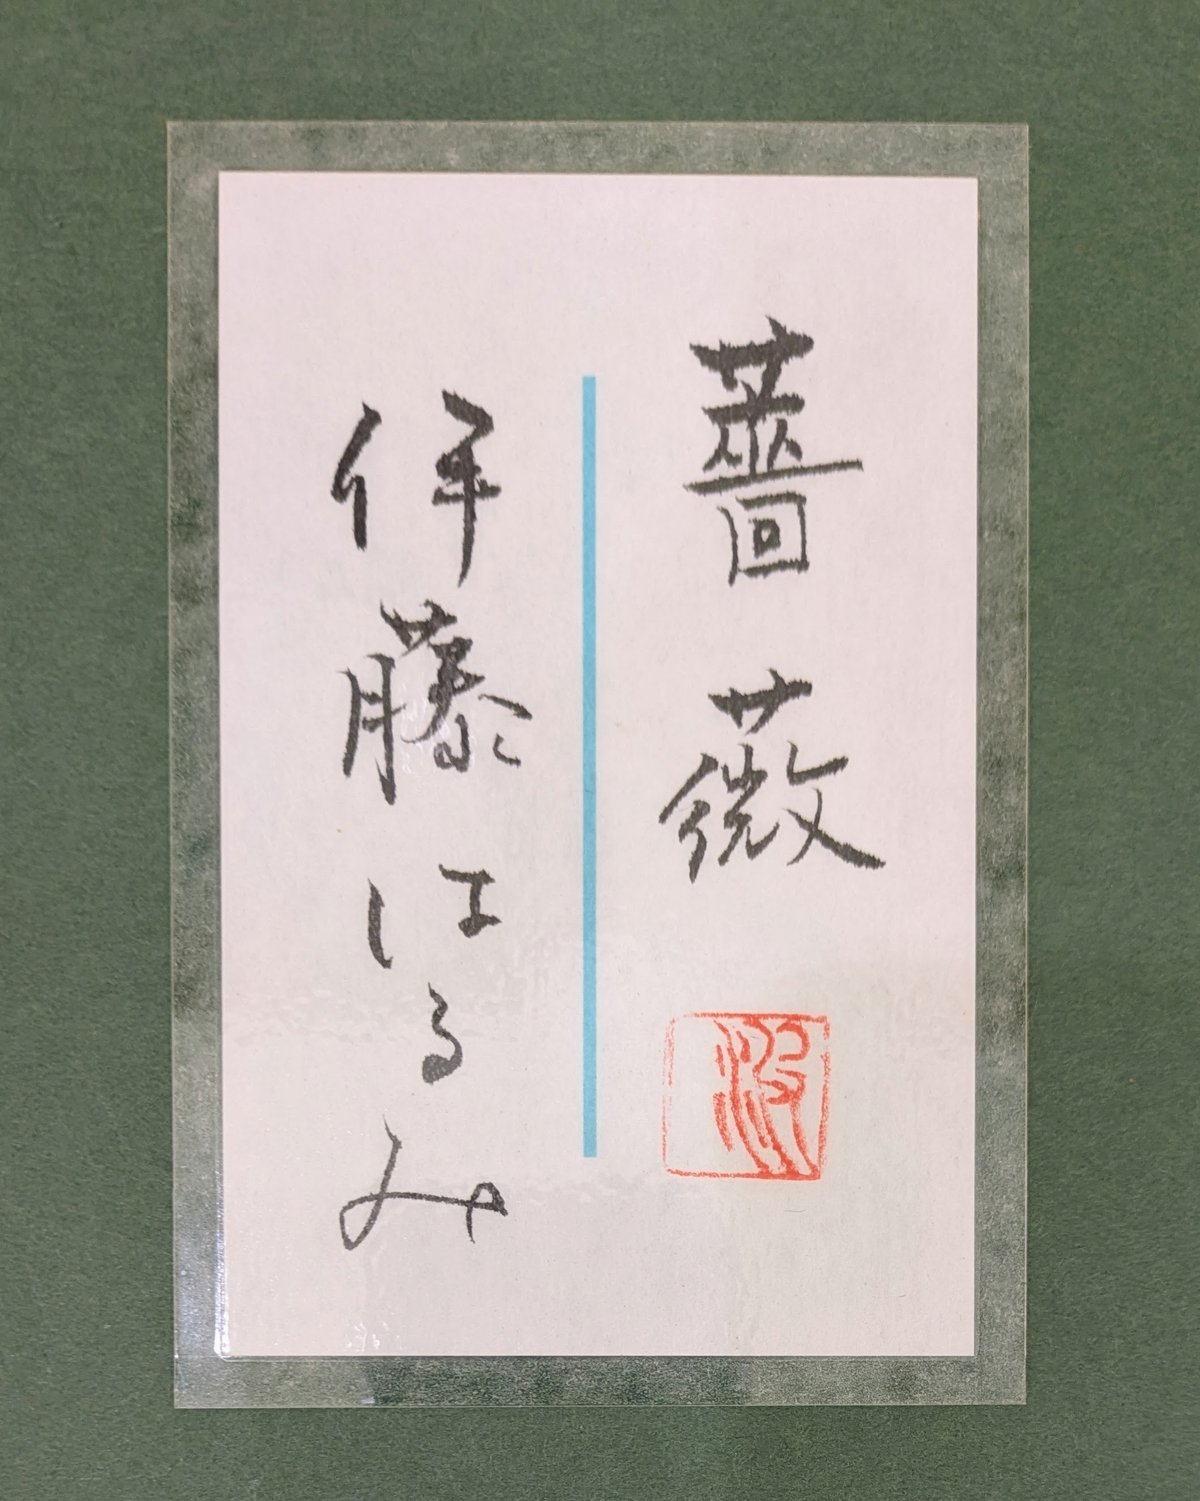 薔薇
伊藤はるみ